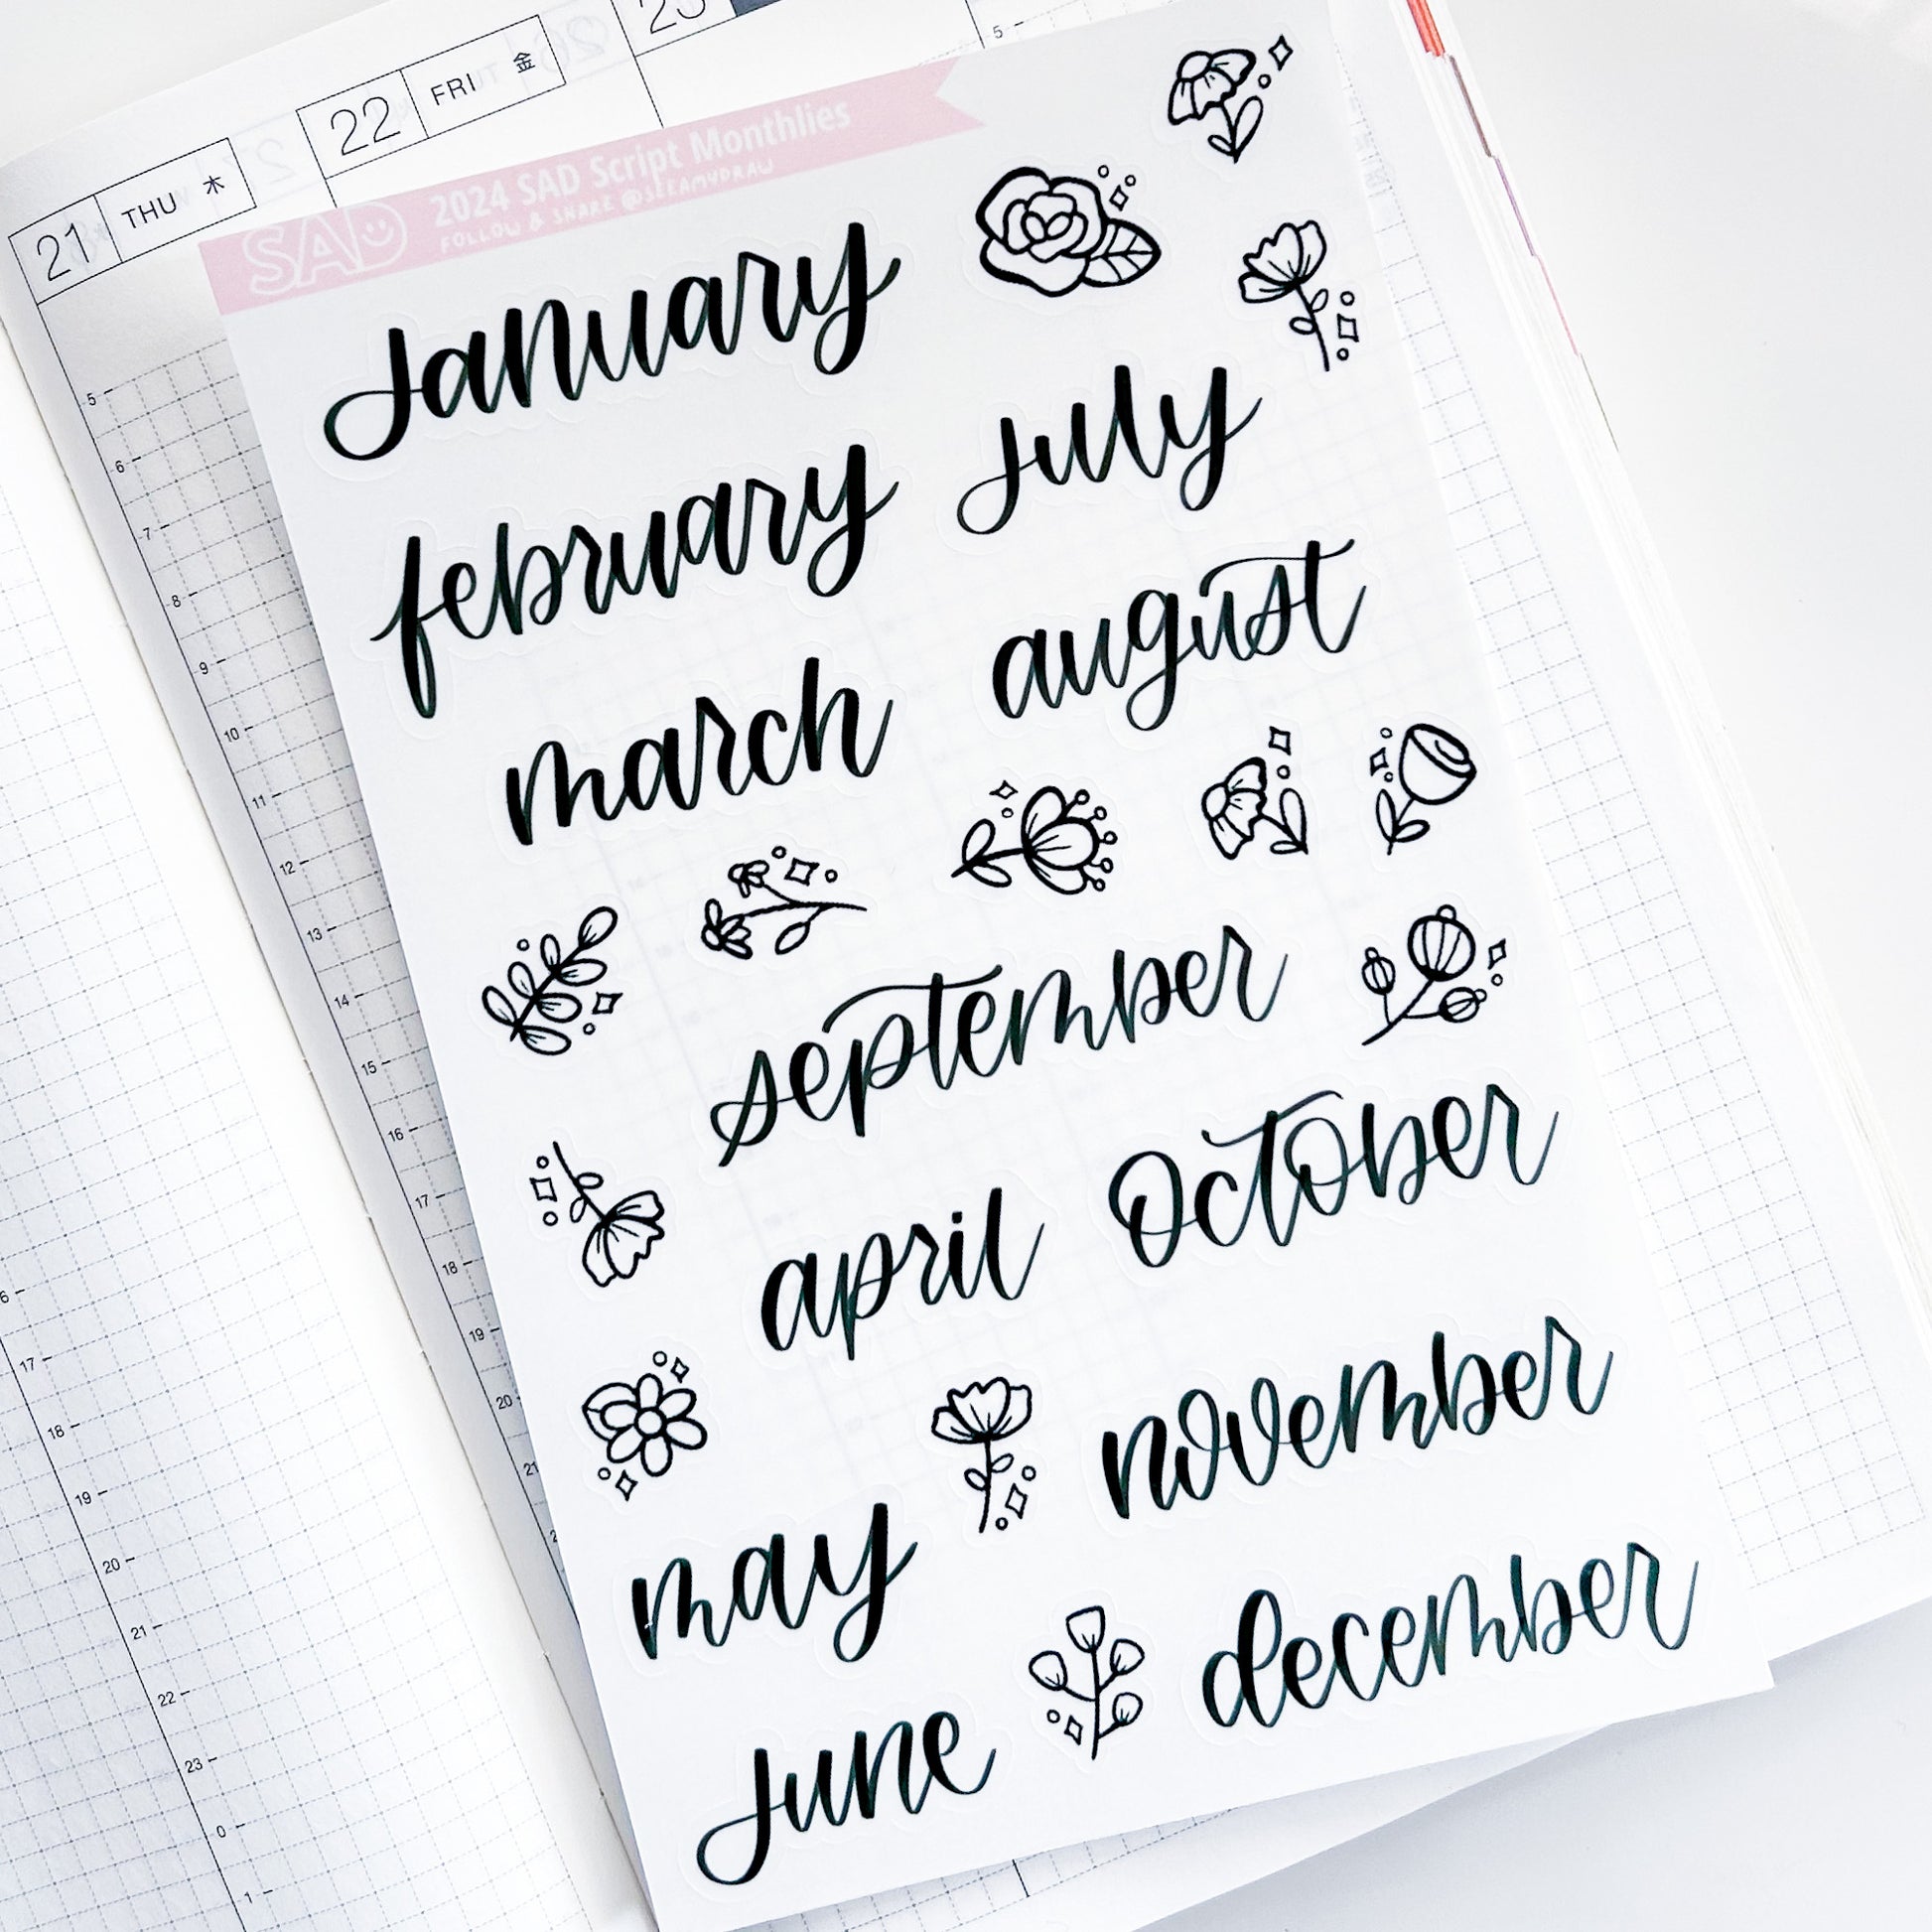 21 THU 木
22 FRI 金
23
SAD
2024 SAD Script Monthlies
FOLLOW & SHARE @STEAMYDRAW
January
february
july
march
august
september
april
October
may
november
june
december
5
5
6
7
8
9
10
11
12
13
14
15
16
17
18
19
20
21
2
6
17
18
19
20
21
22
23
0
1